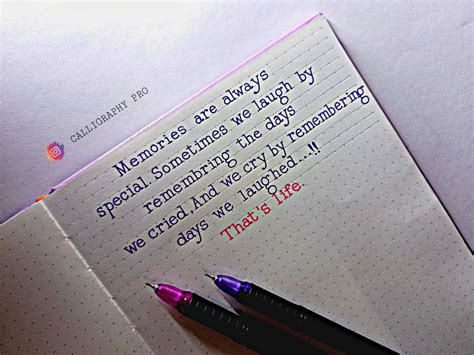 CALLIGRAPHY PRO
Memories are always
special.Sometimes we laugh by
remembring the days
we cried,And we cry by remembering
days we laughed...!!
That's life